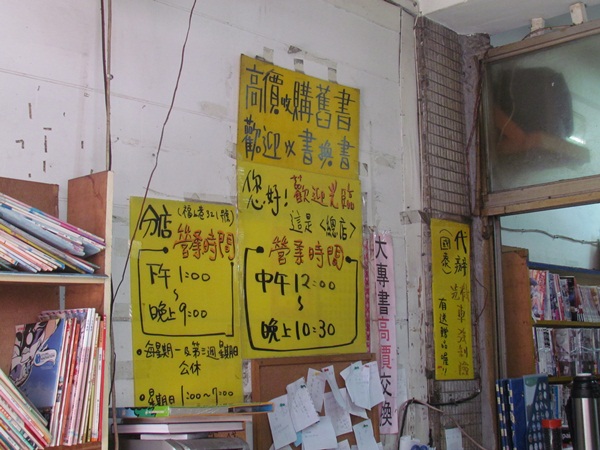 高價收購舊書
歡迎以書換書
您好!歡迎光臨
這是<總店>
營業時間
中午12:00
~
晚上10:30
分店
營業時間
下午1:00
~
晚上9:00
•每星期一及第三週星期日
公休
•星期日1:00~7:00
大專書高價交換
代辦
有送贈品喔!